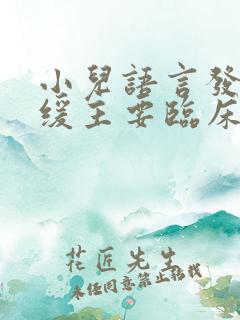 小兒語言發
緩主要臨床
花匠先生
未经同意禁止转载